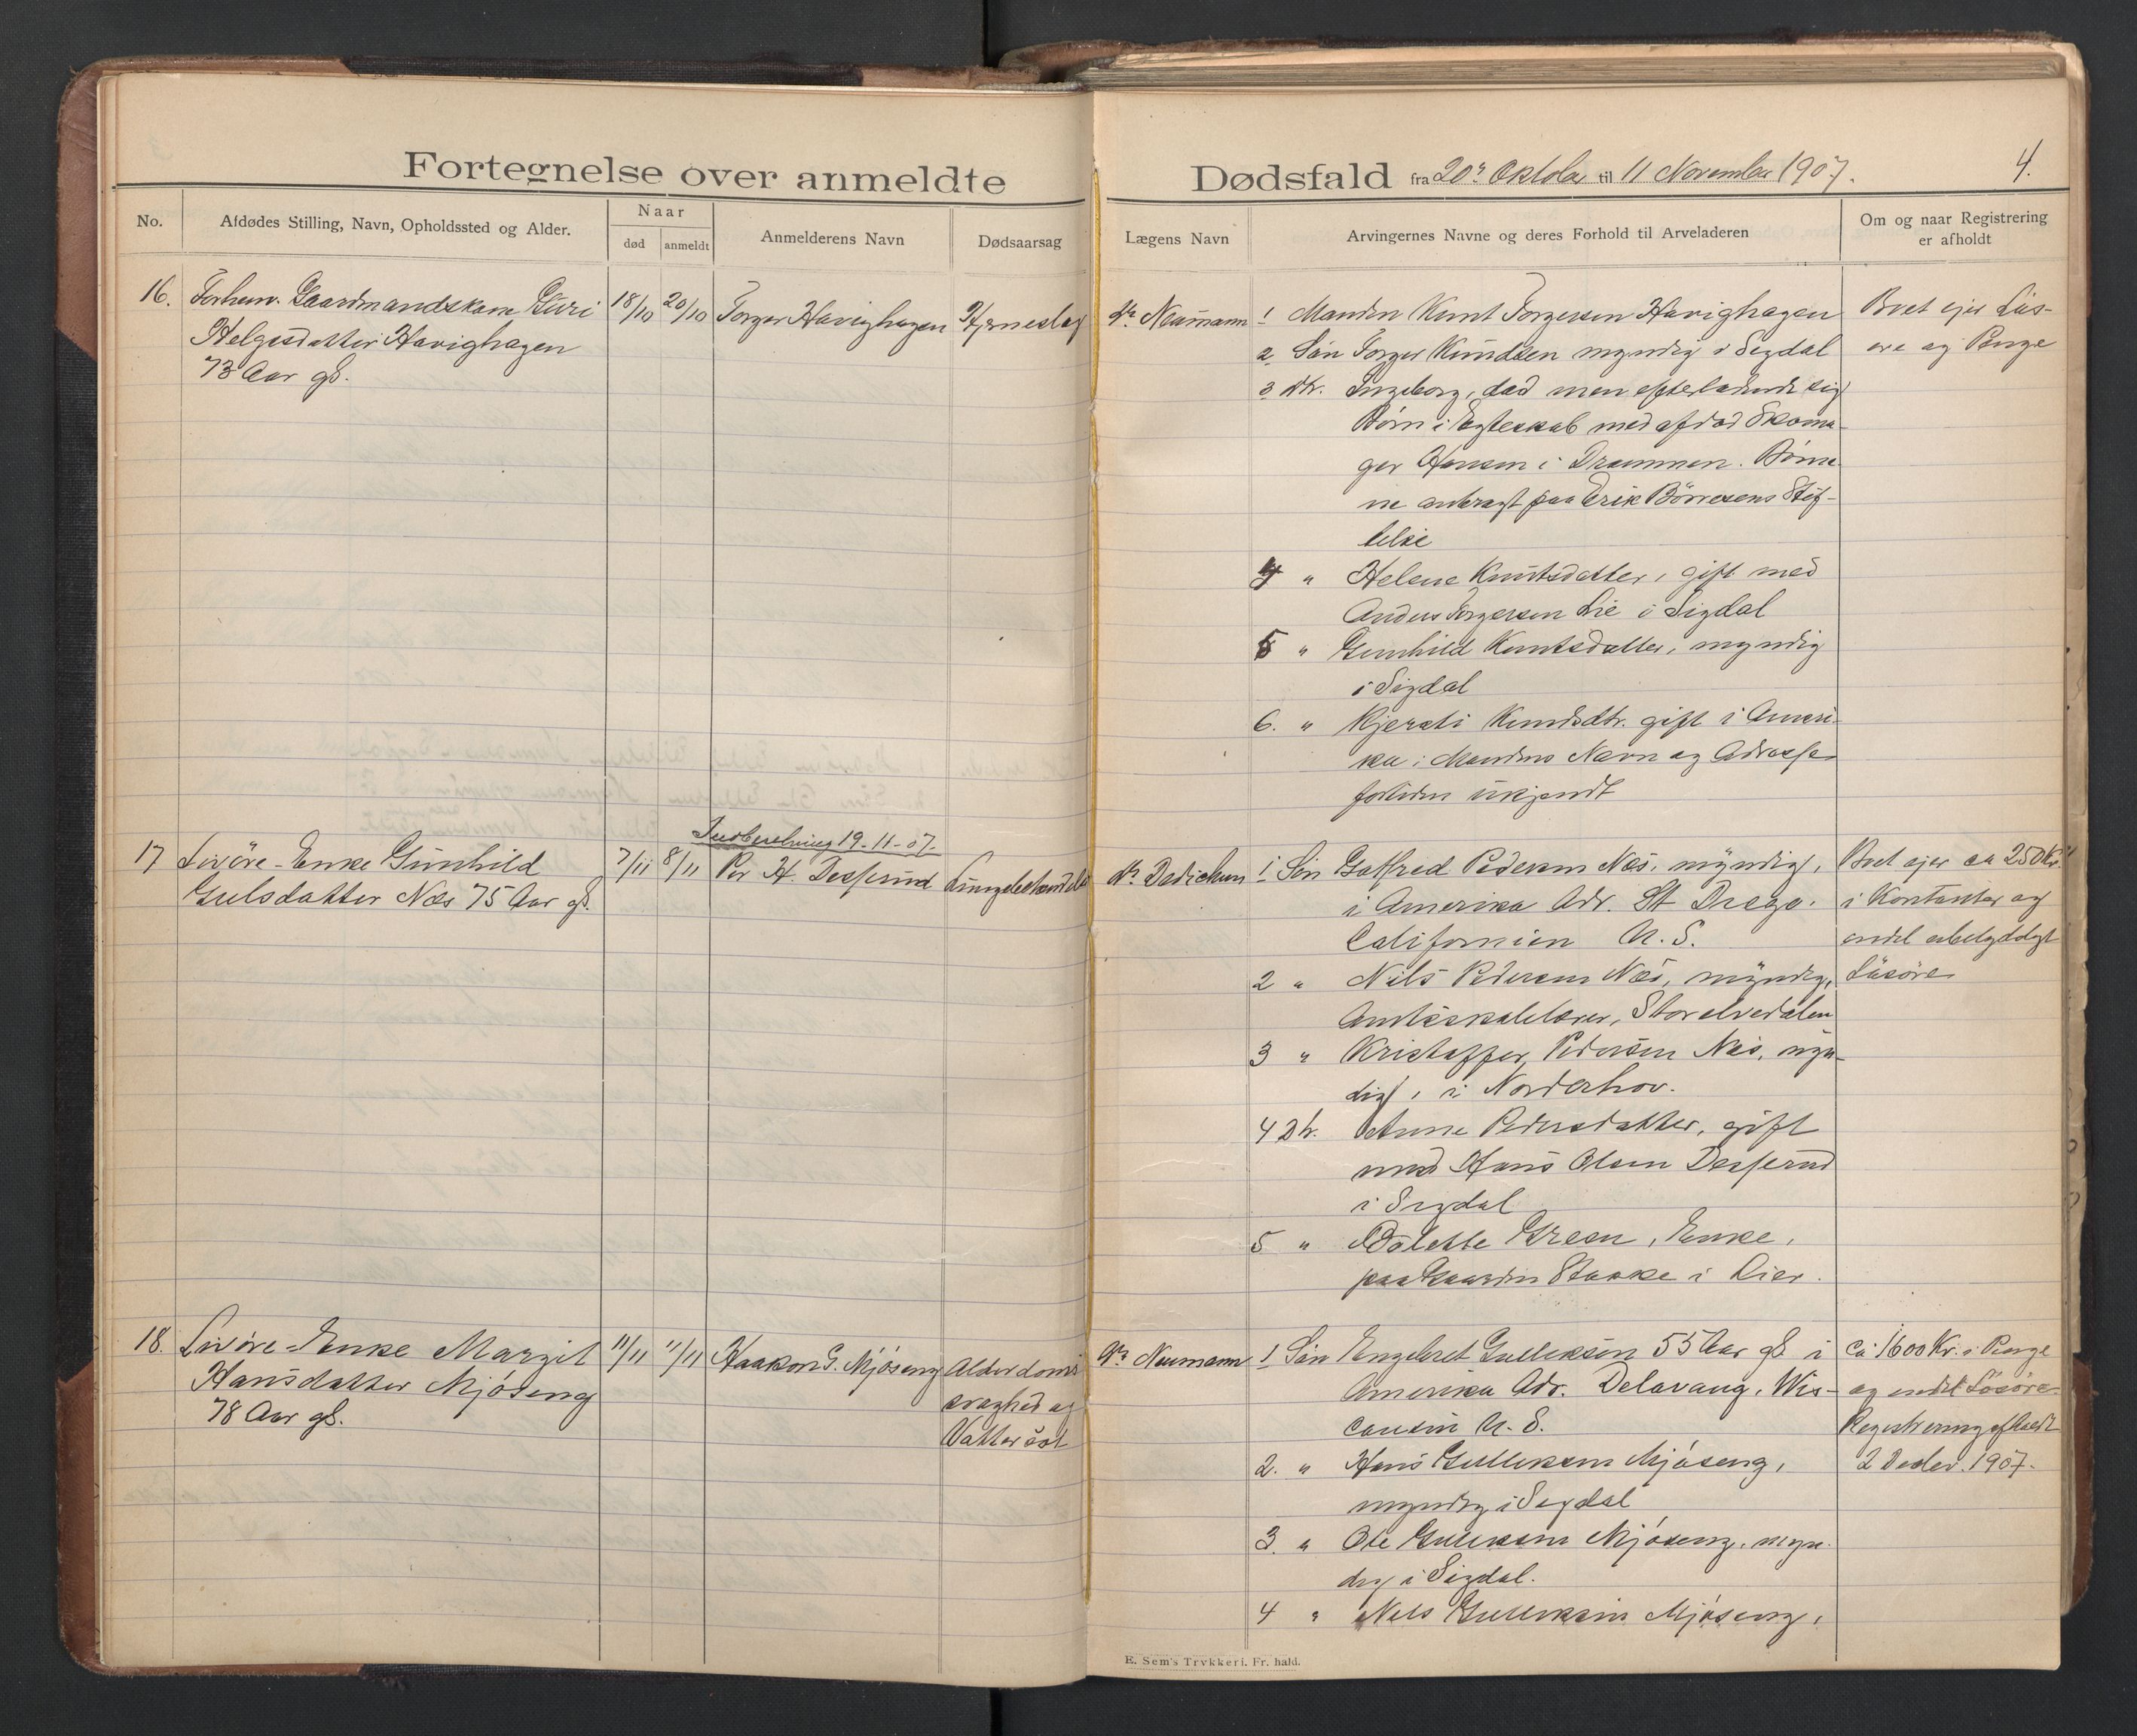 Fortegnelse over anmeldte
Dødsfald fra 20de Oktober til 11 November 1907.
4.
No.
Afdødes Stilling, Navn, Opholdssted og Alder.
Naar
død
anmeldt
Anmelderens Navn
Dødsaarsag
Lægens Navn
Arvingernes Navne og deres Forhold til Arveladeren
Om og naar Registrering
er afholdt
16. Forhenv. Gaardmandskone Guri
Helgesdatter Havighagen
73 Aar gl.
18/10
20/10
Torger Havighagen
Hjerneslag
Dr. Neumann
1 Manden Knut Torgersen Havighagen
2 Søn Torger Knudsen myndig i Sigdal
3 Dtr. Ingeborg, død men efterladende sig
Børn i Egteskab med afdød Skoma-
ger Hansen i Drammen. Børne-
ne anbragt paa Erik Børresens Stif-
telse
4 " Helene Knutsdatter, gift med
Anders Torgersen Lie i Sigdal
5 " Gunhild Knutsdatter, myndig
i Sigdal
6. " Kjersti Knudsdtr. gift i Ameri-
ka; Mandens Navn og Adresse
fortiden ukjendt
Boet ejer Løs-
øre og Penge
Indberetning 19-11-07.
17 Livøre-Enke Gunhild
Gulsdatter Næs 75 Aar gl.
7/11
8/11
Per H. Desserud
Lungebetændelse
Dr. Dedichen
1 Søn Gotfred Pedersen Næs, myndig,
i Amerika Adr. St Diego.
Californien U. S.
2 " Nils Pedersen Næs, myndig,
Amtsskolelærer, Storelvedalen
3 " Kristoffer Pedersen Næs, myn-
dig, i Norderhov.
4 Dtr. Anne Pedersdatter, gift
med Hans Olsen Desserud
i Sigdal
5 " Bolette Green, Enke,
paa Gaarden Staske i Lier.
Boet ejer ca 250 Kr.
i Kontanter og
endel ubetydeligt
Løsøre
18. Livøre-Enke Margit
Hansdatter Mjøseng
78 Aar gl.
11/11
11/11
Haakon G. Mjøseng
Alderdoms
svaghed og
Vattersot
Dr. Neumann
1 Søn Engebret Gulleksen 55 Aar gl. i
Amerika Adr. Delavang, Wis-
consin U. S.
2. " Hans Gulleksen Mjøseng,
myndig i Sigdal
3. " Ole Gulleksen Mjøseng, myn-
dig i Sigdal.
4 " Nels Gulleksen Mjøseng,
Ca 1600 Kr. i Penge
og endel Løsøre
Registrering afholdt
2 Decbr. 1907.
E. Sem's Trykkeri, Fr. hald.